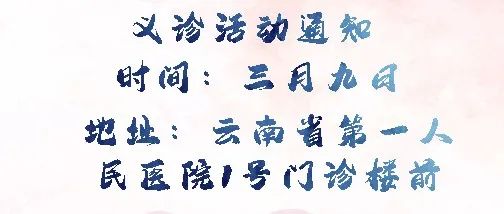 义诊活动通知
时间：三月九日
地址：云南省第一人
民医院1号门诊楼前